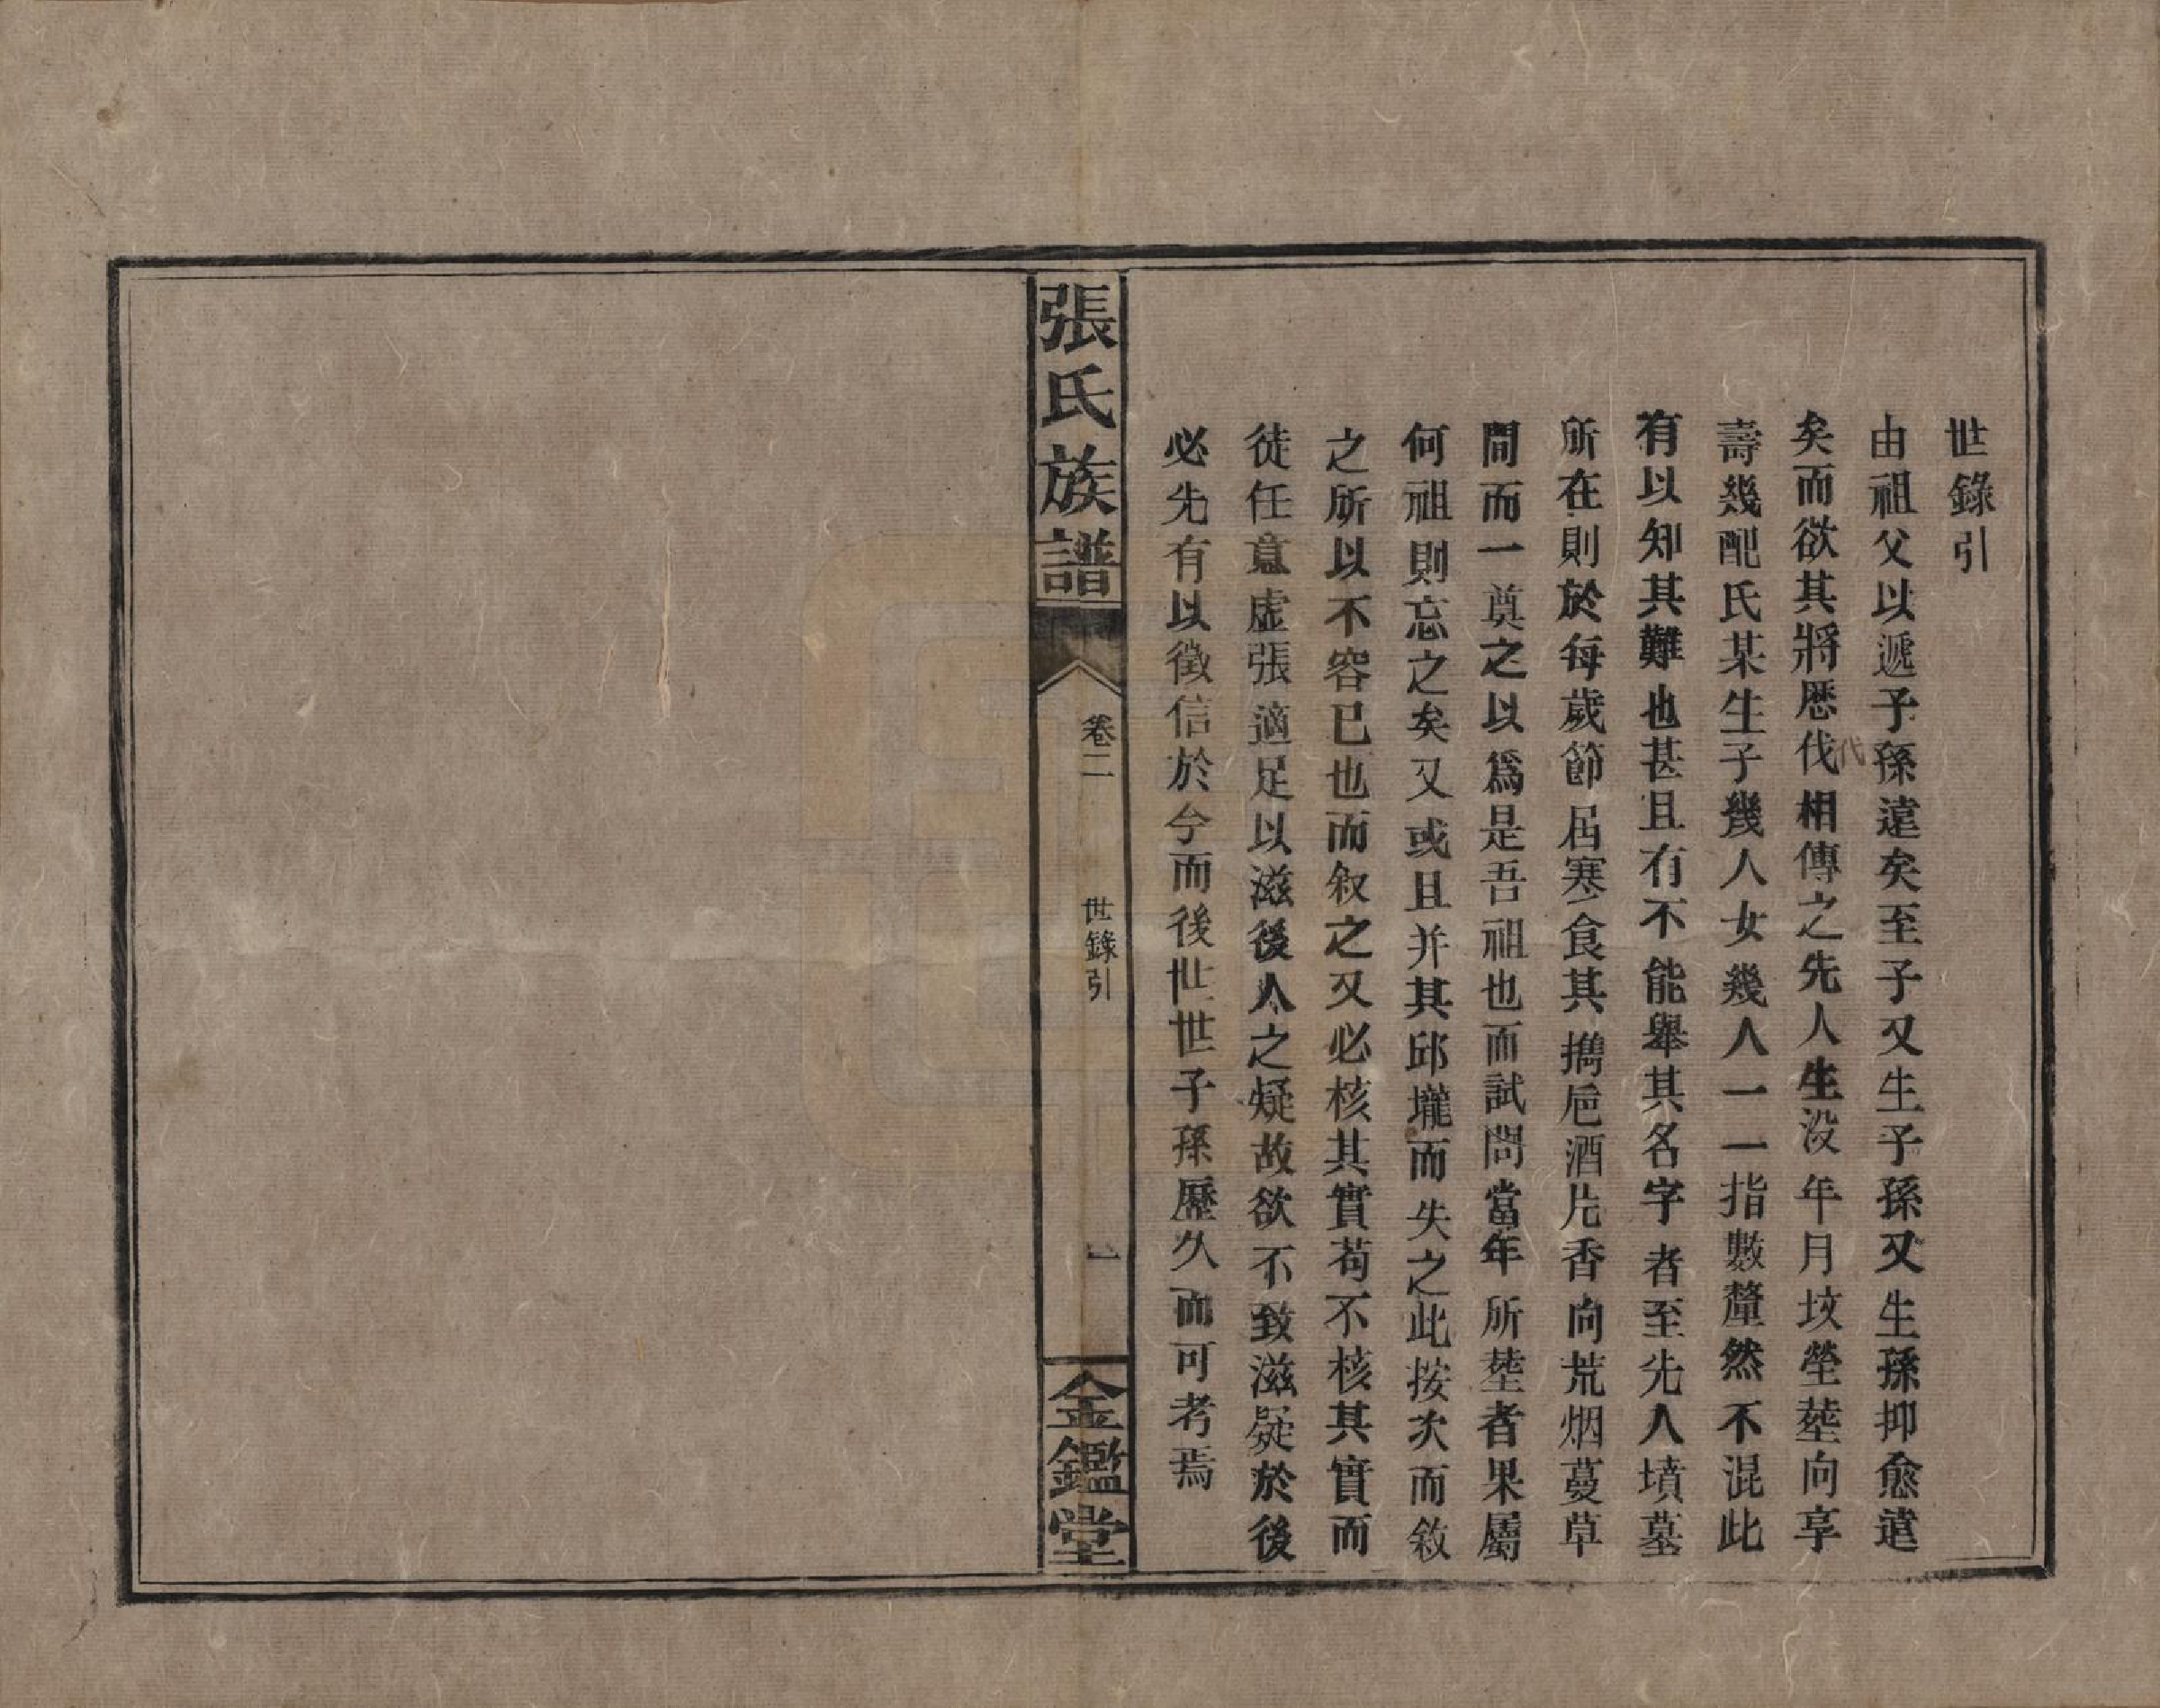 世錄引
由祖父以遞子孫遠矣至子又生子孫又生孫抑愈遠
矣而欲其將歷伐相傳之先人生没年月坟塋塟向享
代
壽幾配氏某生子幾人女幾人一一指數釐然不混此
有以知其難也甚且有不能舉其名字者至先人墳墓
所在則於每歲節届寒食其擕卮酒片香向荒烟蔓草
間而一奠之以爲是吾祖也而試問當年所塟者果屬
何祖則忘之矣又或且并其邱壠而失之此按次而敘
之所以不容已也而叙之又必核其實苟不核其實而
徒任意虚張適足以滋後人之疑故欲不致滋疑於後
必先有以徵信於今而後世世子孫歷久而可考焉
張氏族譜
卷二
世錄引
一
金鑑堂